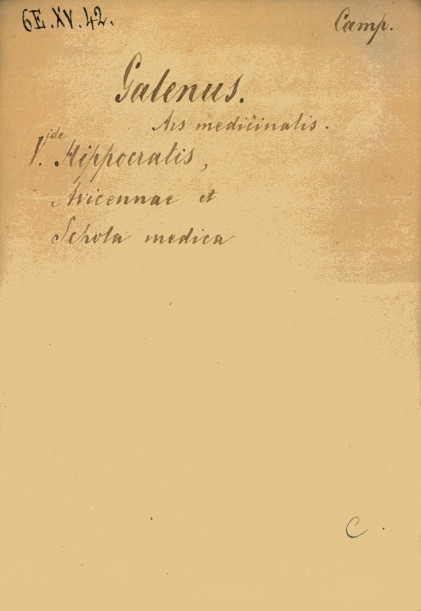 6E.XV.42.
Camp.
Galenus.
Ars medicinalis.
V.ide Hippocratis,
Avicennae et
Schola medica
C.